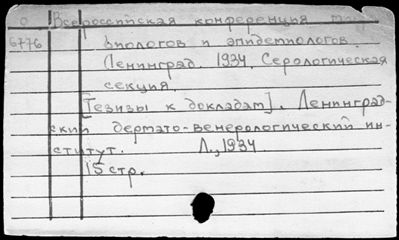 О Всероссийская конференция
6776 биологов и эпидемиологов.
Ленинград. 1934. Серологическая
секция.
[Тезизы к докладам]. Ленинград-
ский дермато-венерологический ин-
ститут. Л., 1934
15 стр.